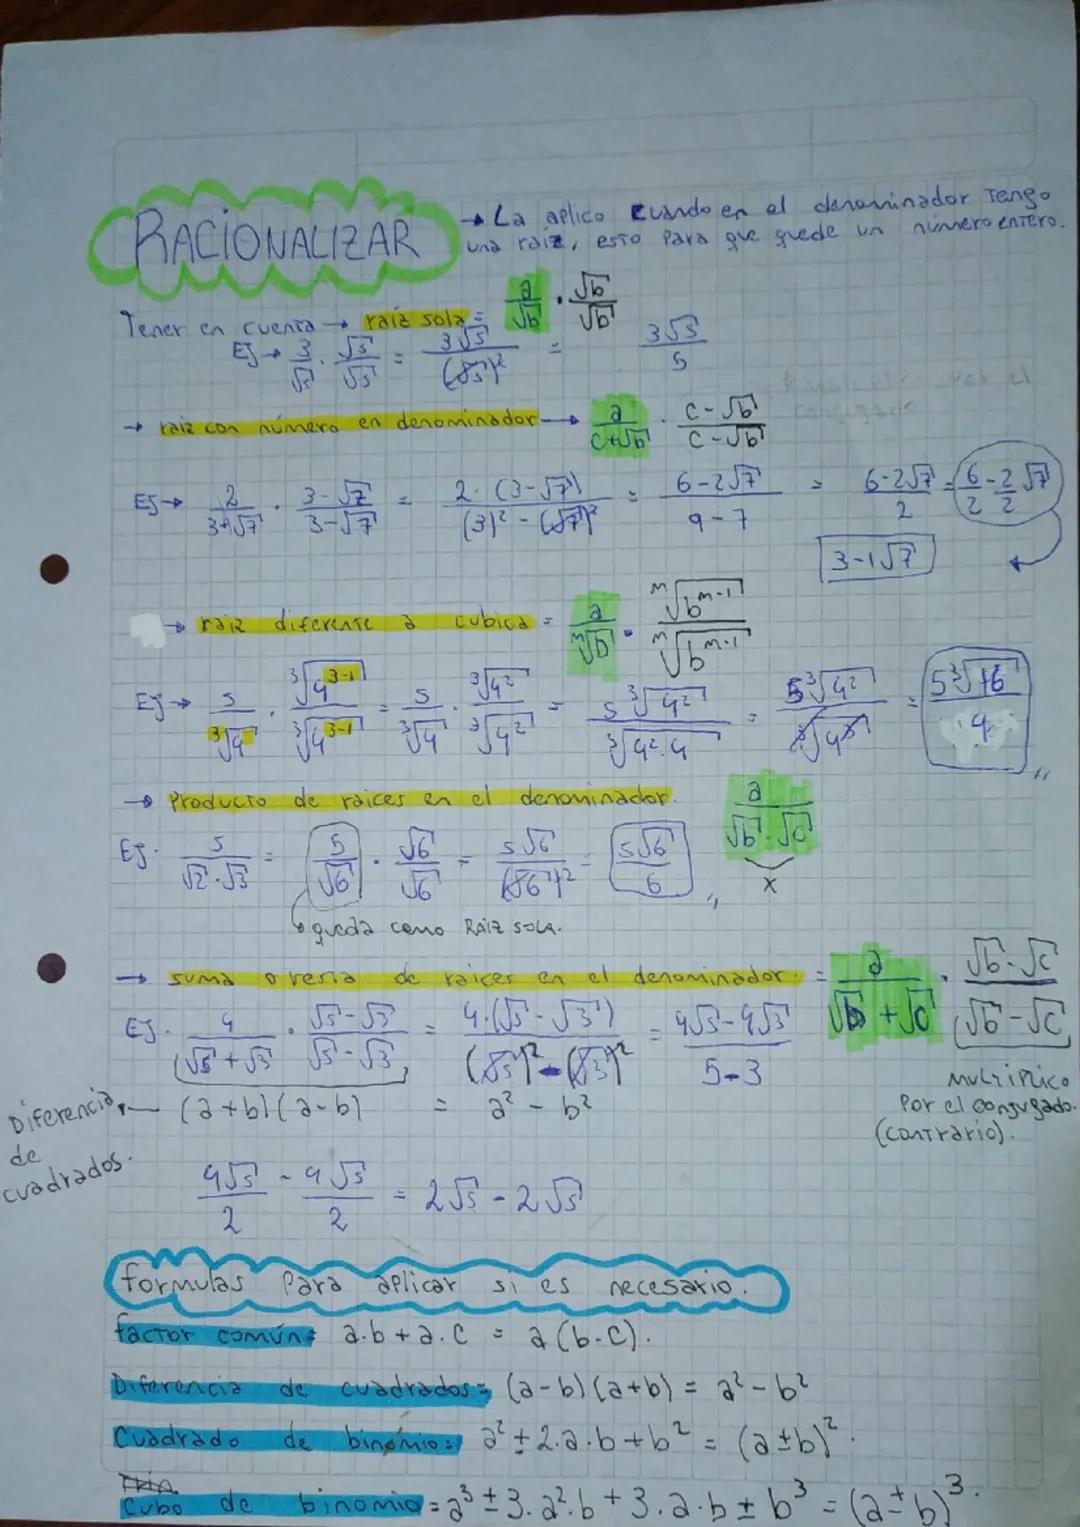 RACIONALIZAR → La aplico cuando en el denominador tengo
una raíz, esto para que quede un número entero.
Tener en cuenta → raíz sola = a/√b · √b/√b
Ej → 3/√5 · √5/√5 = 3√5/(√5)² = 3√5/5
→ raíz con número en denominador → a/(c+√b) · (c-√b)/(c-√b)
Ej → 2/(3+√7) · (3-√7)/(3-√7) = 2·(3-√7)/((3)²-(√7)²) = (6-2√7)/(9-7) = (6-2√7)/2 = 6/2 - 2/2 √7
3-1√7
→ raíz diferente a cubica = a/ᵐ√b · ᵐ√b^(m-1)/ᵐ√b^(m-1)
Ej → 5/³√4 · ³√4^(3-1)/³√4^(3-1) = 5/³√4 · ³√4²/³√4² = 5³√4²/³√4².4 = 5³√4²/³√4³ = 5³√16/4
→ Producto de raices en el denominador. a/(√b·√c)
x
Ej. 5/(√2·√3) = 5/√6 · √6/√6 = 5√6/(√6)² = 5√6/6
queda como RAIZ SOLA.
→ suma o resta de raices en el denominador. = a/(√b+√c) · (√b-√c)/(√b-√c)
Ej. 4/(√5+√3) · (√5-√3)/(√5-√3) = 4·(√5-√3)/((√5)²-(√3)²) = (4√5-4√3)/(5-3)
Multiplico
Por el conjugado.
(contrario).
Diferencia
de
cuadrados.
(a+b)(a-b) = a²-b²
4√5/2 - 4√3/2 = 2√5-2√3
formulas para aplicar si es necesario.
factor común: a.b+a.c = a(b-c).
Diferencia de cuadrados= (a-b)(a+b) = a²-b²
Cuadrado de binomio: a²±2.a.b+b² = (a±b)².
Cubo de binomio = a³±3.a².b+3.a.b±b³ = (a±b)³.